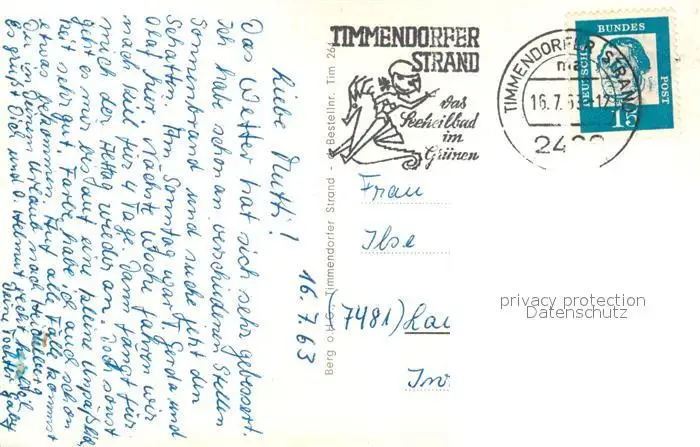 Liebe Mutti!
Das Wetter hat sich sehr gebessert.
Ich habe schon an verschiedenen Stellen
Sonnenbrand und suche jetzt den
Schatten. Am Sonntag war T. Gerda und
Olaf hier. nächste Woche fahren wir
nach Kiel für 4 Tage. Dann fängt für
mich der Alltag wieder an. sonst
geht es mir bis auf eine kleine
sehr gut. Farbe habe ich auch schon
etwas bekommen. Auf alle Fälle kommst
Du in Deinem Urlaub nach Heidelberg
Es grüßt Dich und O. Helmut recht herzlich
Deine Tochter Gaby
16.7.63
Berg o.H.G. Timmendorfer Strand - Bestellnr. Tim 264
TIMMENDORFER
STRAND
das
Seeheilbad
im
Grünen
TIMMENDORFER STRAND
16.7.6
-17
24
DEUTSCHE
BUNDES
POST
15
Frau
Ilse
(7481)
privacy protection
Datenschutz